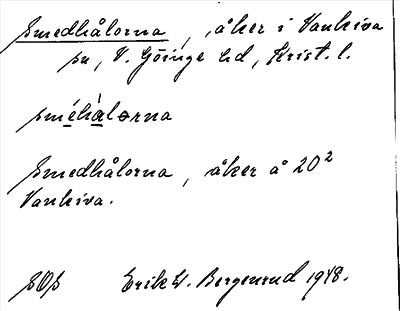 Smedhålorna, åker i Vankiva
sn, V. Göinge hd, Krist. l.
sméhàlorna
Smedhålorna, åker å 20²
Vankiva.
SOS Erik W. Bergenrud 1948.